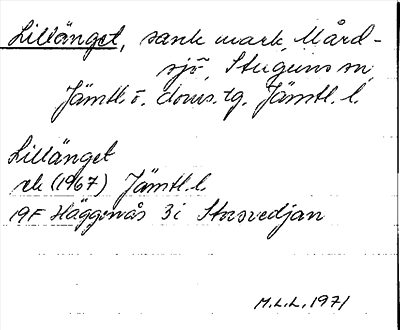 Lillänget, sank mark, Mård-
sjö, Stuguns sn,
Jämtl. ö. doms. tg. Jämtl. l.
Lillänget
ek (1967) Jämtl. l
19F Häggenås 3i Storvedjan
M.L.L. 1971